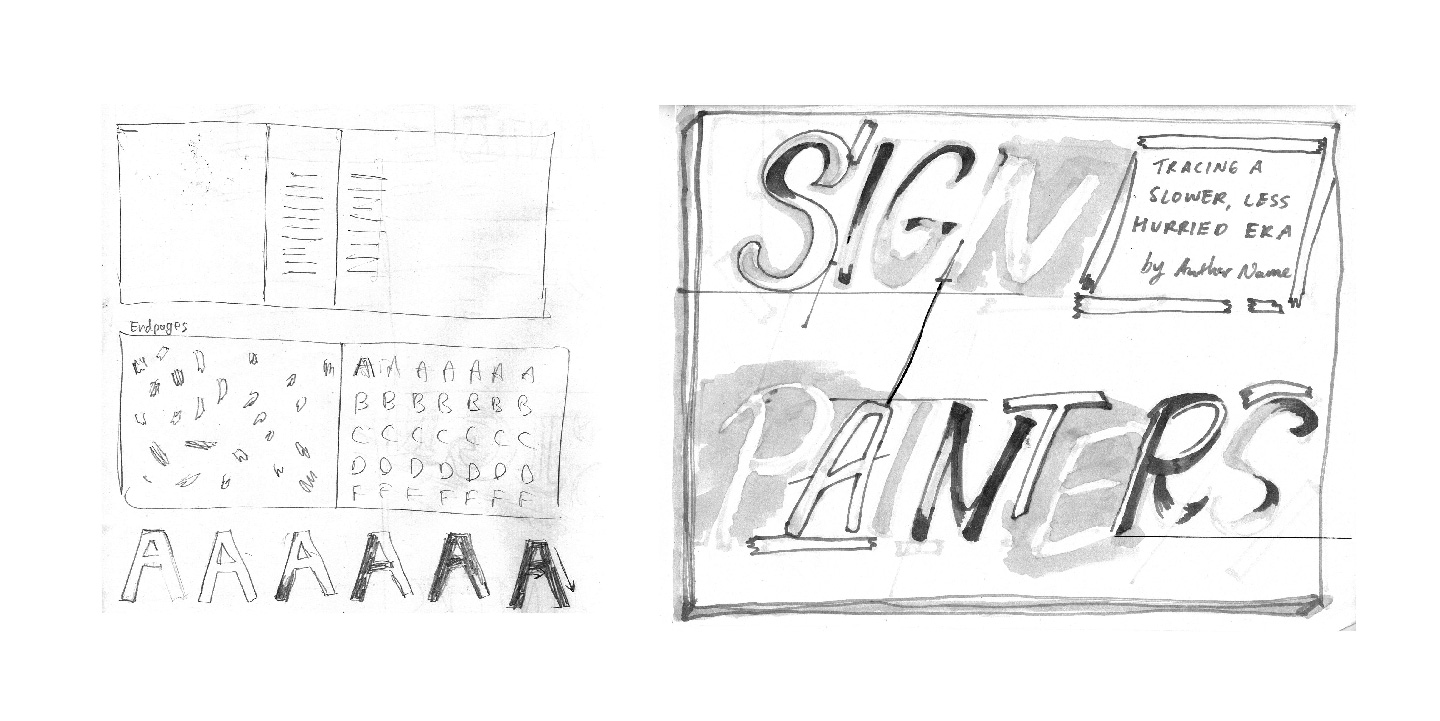 Endpages
A A A A A A A
B B B B B B B
C C C C C C C
D D D D D D D
F F F F F F F
A A A A A A
SIGN
TRACING A
SLOWER, LESS
HURRIED ERA
by Author Name
PAINTERS